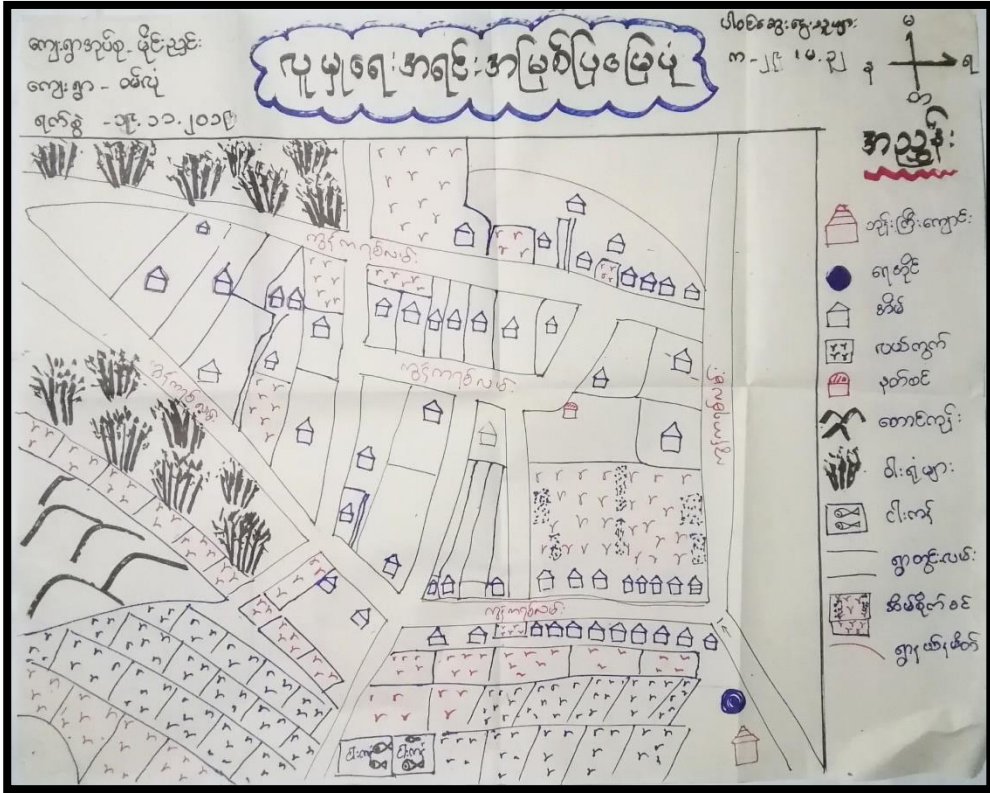 ကျေးရွာအုပ်စု - မိုင်းညွင်း
ကျေးရွာ - ဝမ်လုံ
ရက်စွဲ - ၁၄.၁၁.၂၀၁၉
လူမှုရေးအရင်းအမြစ်ပြမြေပုံ
ပါဝင်ဆွေးနွေးသူများ
မ
န
ရ
တ
အညွှန်း
ဘုန်းကြီးကျောင်း
ရေတိုင်
အိမ်
လယ်ကွက်
နတ်စင်
တောင်ကုန်း
ဝါးရုံများ
ငါးကန်
ရွာတွင်းလမ်း
အိမ်စိုက်ခင်း
ရွာနယ်နမိတ်
ကွန်ကရစ်လမ်း
ကွန်ကရစ်လမ်း
ကွန်ကရစ်လမ်း
ကွန်ကရစ်လမ်း
ငါးကန်
ငါးကန်